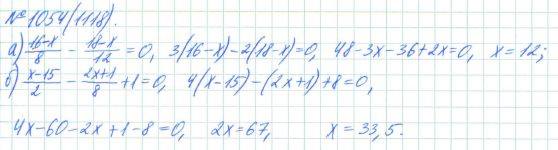 № 1054(1118).
а) (16-x)/8 - (18-x)/12 = 0, 3(16-x)-2(18-x)=0, 48-3x-36+2x=0, x=12;
б) (x-15)/2 - (2x+1)/8 + 1 = 0, 4(x-15)-(2x+1)+8=0,
4x-60-2x+1-8=0, 2x=67, x=33,5.